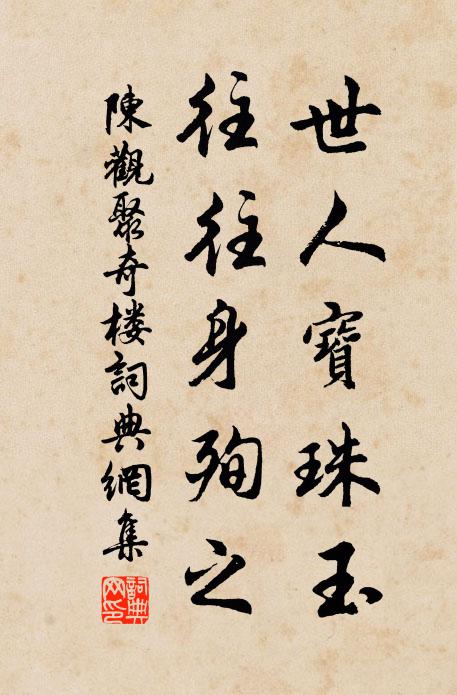 世人寶珠玉
往往身殉之
陳觀聚奇楼詞典網集
詞典網印